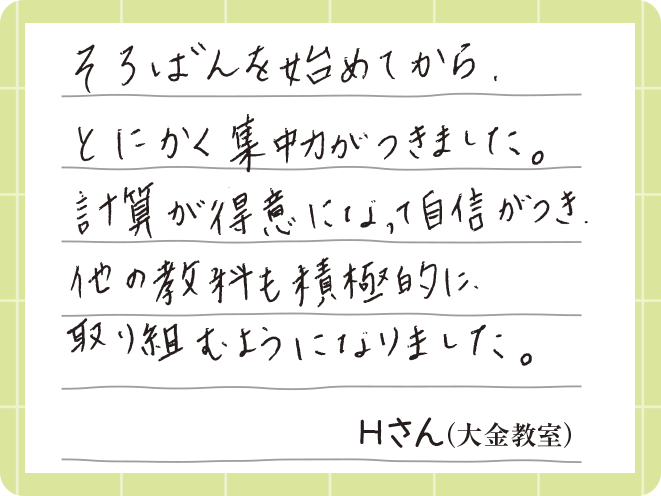 そろばんを始めてから、
とにかく集中力がつきました。
計算が得意になって自信がつき、
他の教科も積極的に、
取り組むようになりました。
Hさん(大金教室)